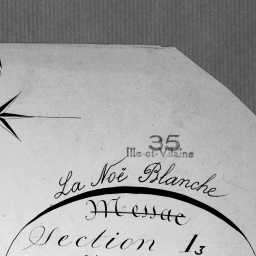 35
Ille-et-Vilaine
La Noë Blanche
Messac
Section I3